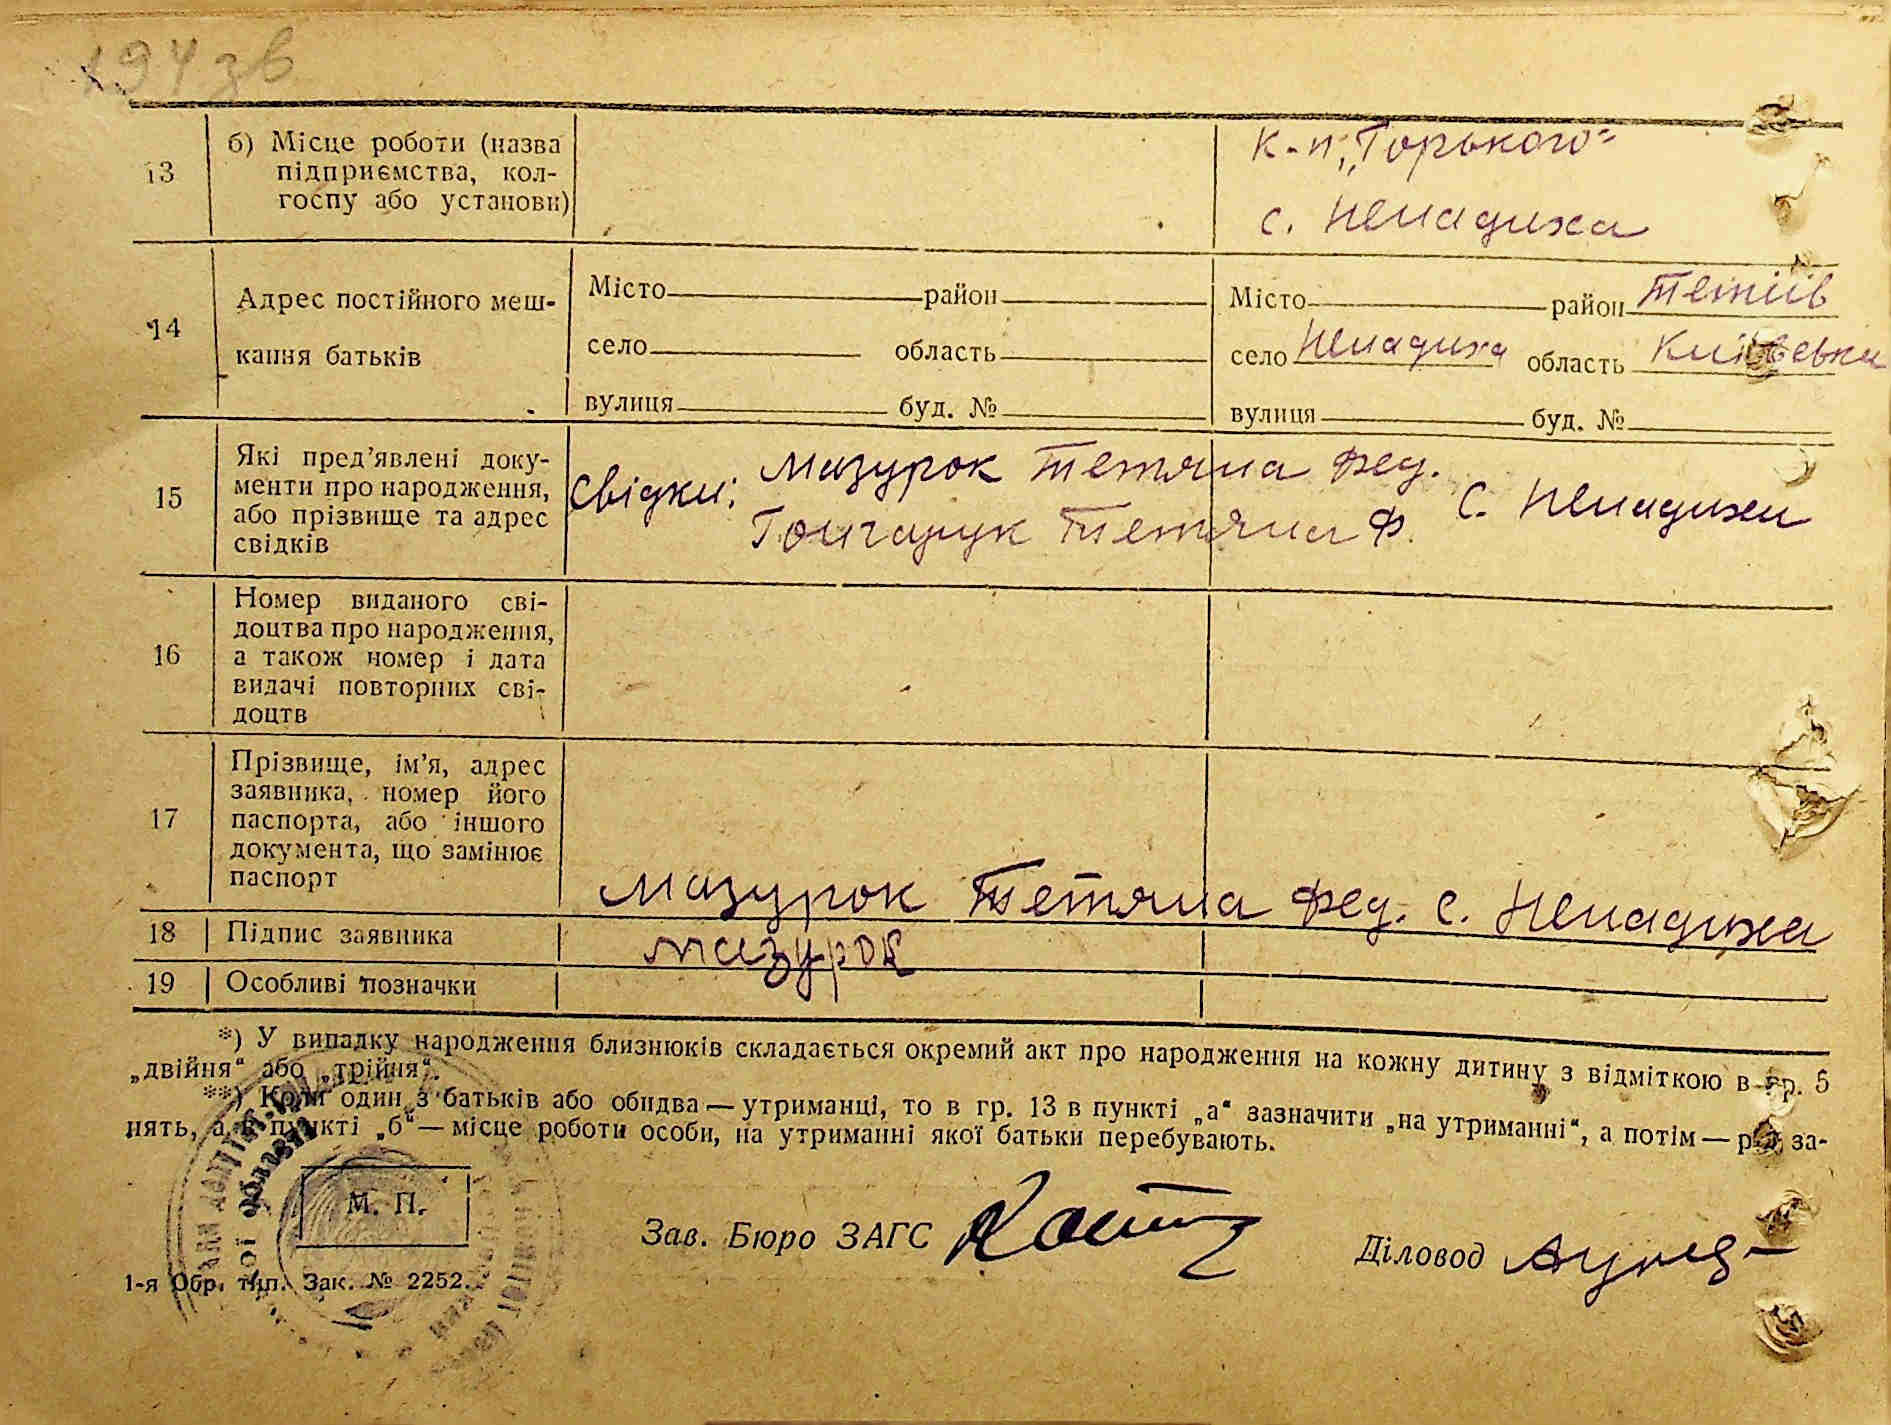 194 зв
13
б) Місце роботи (назва
підприємства, кол-
госпу або установи)
к-п "Горького"
с. Ненадиха
14
Адрес постійного меш-
кання батьків
Місто район
село область
вулиця буд. №
Місто район Тетіїв
село Ненадиха область Київська
вулиця буд. №
15
Які пред'явлені доку-
менти про народження,
або прізвище та адрес
свідків
Свідки: Мазурок Тетяна Фед.
Гончарук Тетяна Ф. с. Ненадиха
16
Номер виданого сві-
доцтва про народження,
а також номер і дата
видачі повторних сві-
доцтв
17
Прізвище, ім'я, адрес
заявника, номер його
паспорта, або іншого
документа, що замінює
паспорт
Мазурок Тетяна Фед. с. Ненадиха
18 Підпис заявника Мазурок
19 Особливі позначки
*) У випадку народження близнюків складається окремий акт про народження на кожну дитину з відміткою в гр. 5
„двійня“ або „трійня“.
**) Коли один з батьків або обидва — утриманці, то в гр. 13 в пункті „а“ зазначити „на утриманні“, а потім — рід за-
нять, а в пункті „б“ — місце роботи особи, на утриманні якої батьки перебувають.
М. П.
Зав. Бюро ЗАГС
Діловод
1-я Обр. тип. Зак. № 2252.